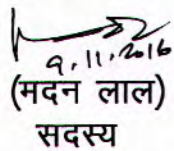 9.11.2016
(मदन लाल)
सदस्य